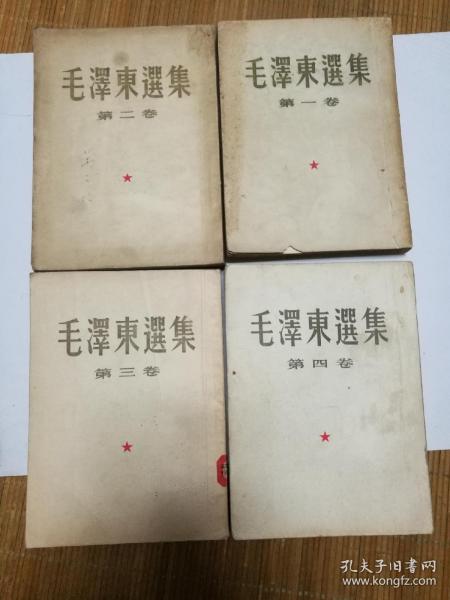 毛澤東選集
第二卷
毛澤東選集
第一卷
毛澤東選集
第三卷
毛澤東選集
第四卷
孔夫子旧书网
www.kongfz.com